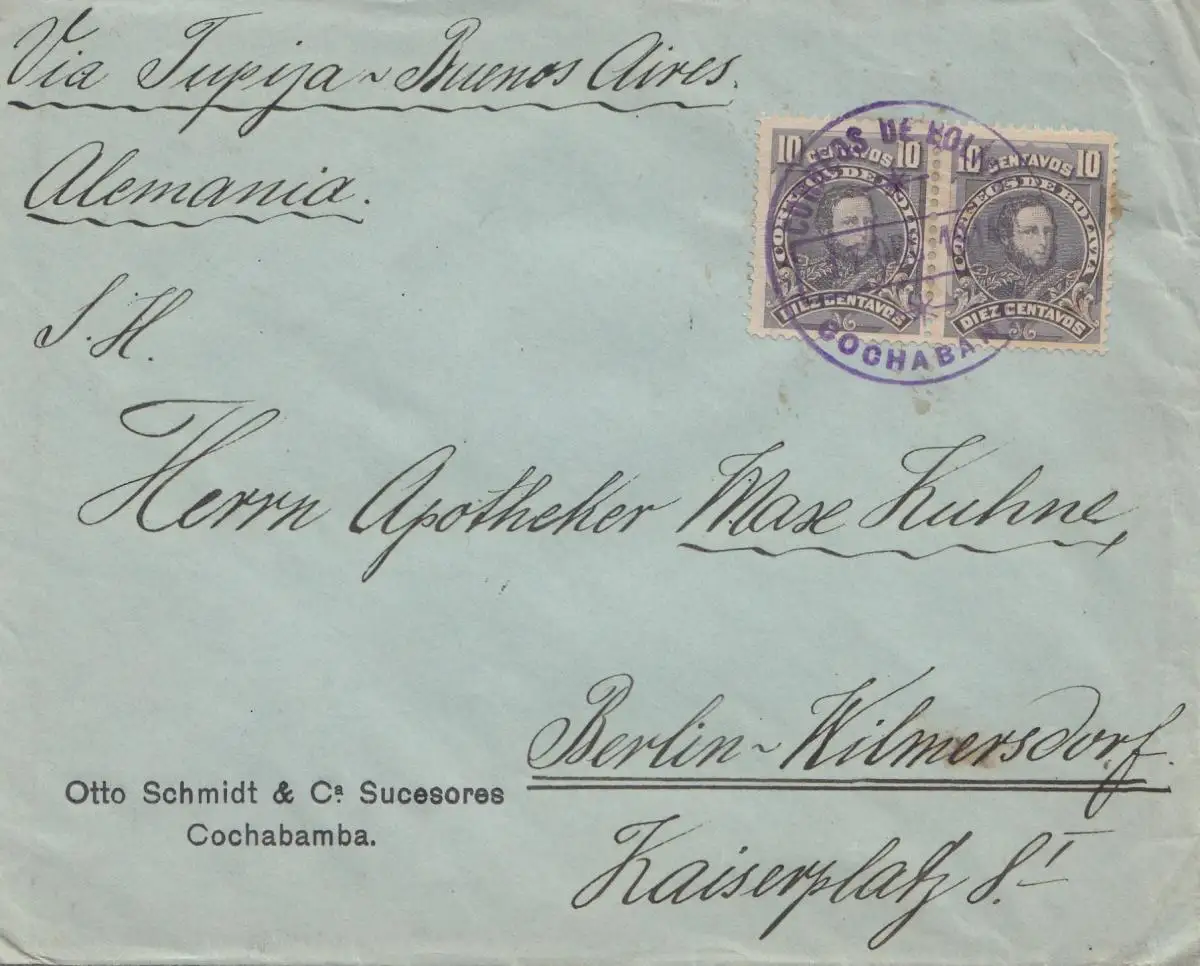 Via Tupiza ~ Buenos Aires.
Alemania.
10 CENTAVOS 10
CORREOS DE BOLIVIA
DIEZ CENTAVOS
10 CENTAVOS 10
CORREOS DE BOLIVIA
DIEZ CENTAVOS
CORREOS DE BOLI
COCHABAM
S. H.
Herrn Apotheker Max Kuhne,
Berlin ~ Wilmersdorf.
Kaiserplatz 8.I
Otto Schmidt & Cª Sucesores
Cochabamba.